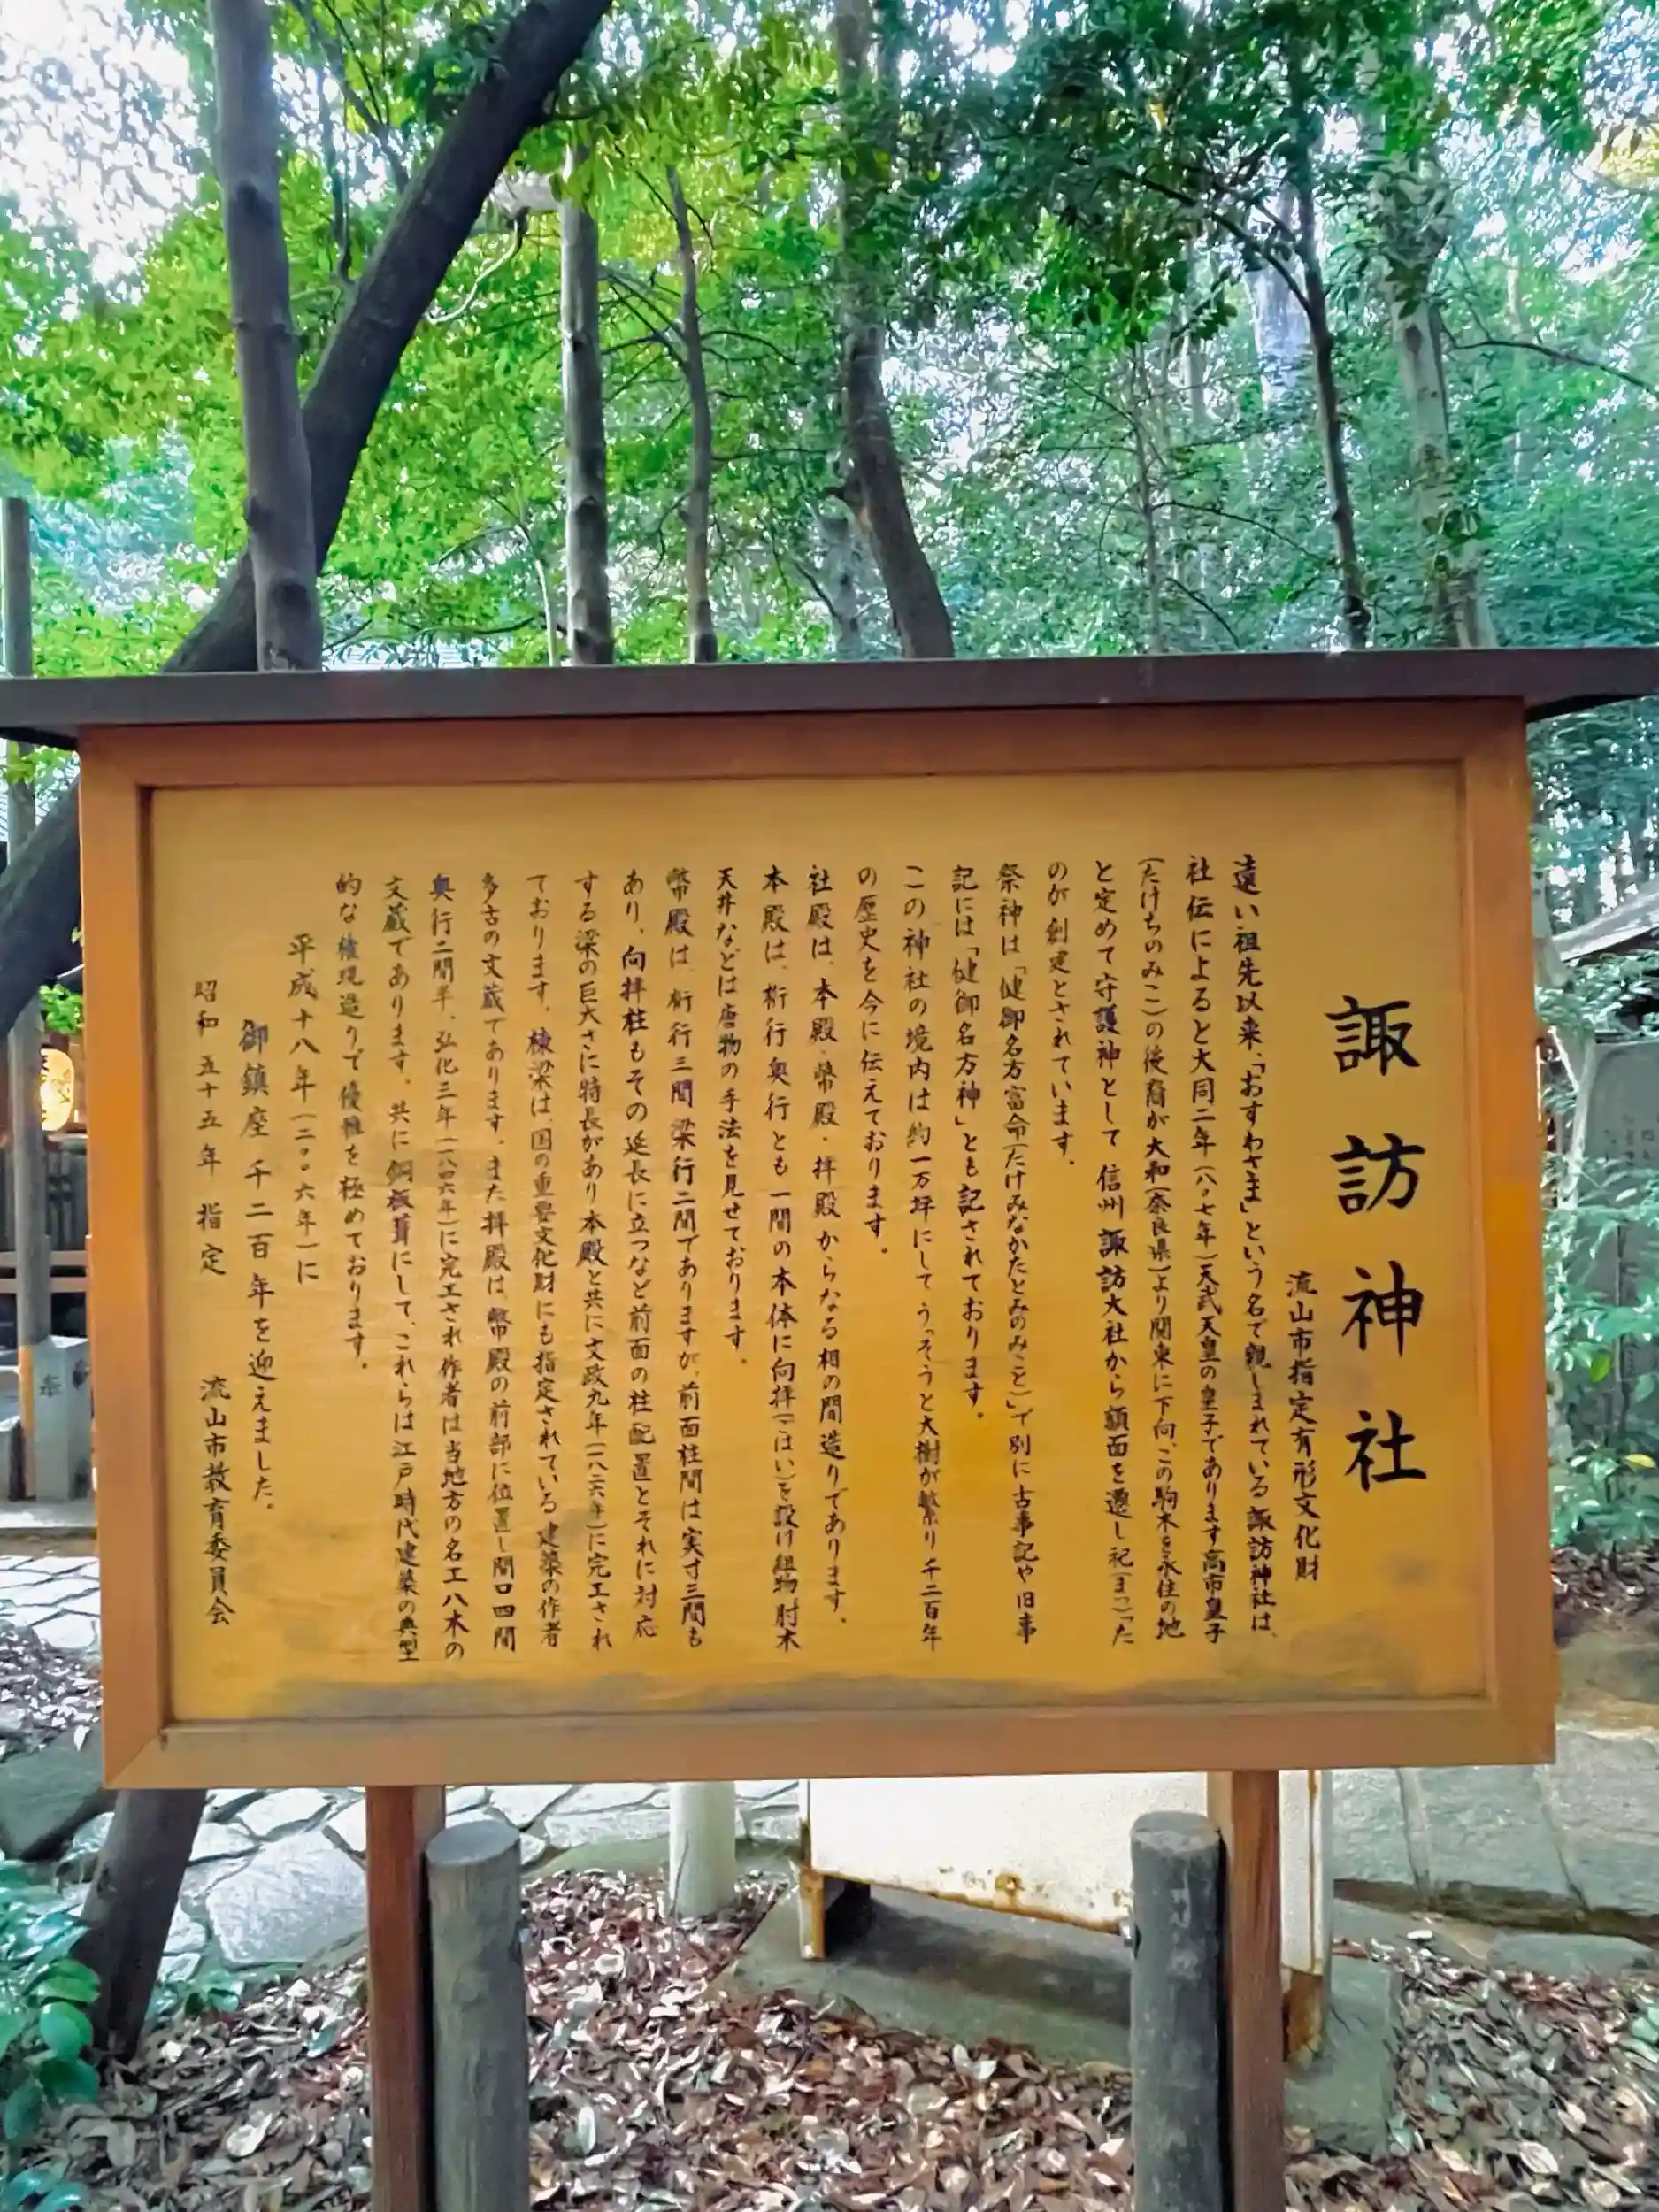 諏訪神社
流山市指定有形文化財
遠い祖先以来、「おすわさま」という名で親しまれている諏訪神社は、
社伝によると大同二年(八〇七年)天武天皇の皇子であります高市皇子
(たけちのみこ)の後裔が大和(奈良県)より関東に下向、この駒木を永住の地
と定めて守護神として信州諏訪大社から額面を遷し祀(まつ)った
のが創建とされています。
祭神は「健御名方富命(たけみなかたとみのみこと)」で別に古事記や旧事
記には「健御名方神」とも記されております。
この神社の境内は約一万坪にしてうっそうと大樹が繁り千二百年
の歴史を今に伝えております。
社殿は、本殿・幣殿・拝殿からなる相の間造りであります。
本殿は、桁行奥行とも一間の本体に向拝(ごはい)を設け組物肘木
天井などは唐物の手法を見せております。
幣殿は、桁行三間梁行二間でありますが、前面柱間は実寸三間も
あり、向拝柱もその延長に立つなど前面の柱配置とそれに対応
する梁の巨大さに特長があり本殿と共に文政九年(一八二六年)に完工され
ております。棟梁は、国の重要文化財にも指定されている建築の作者
多古の文蔵であります。また拝殿は、幣殿の前部に位置し間口四間
奥行二間半、弘化三年(一八四六年)に完工され作者は当地方の名工八木の
文蔵であります。共に銅板葺にして、これらは江戸時代建築の典型
的な権現造りで優雅を極めております。
平成十八年(二〇〇六年)に
御鎮座千二百年を迎えました。
昭和五十五年 指定 流山市教育委員会
奉